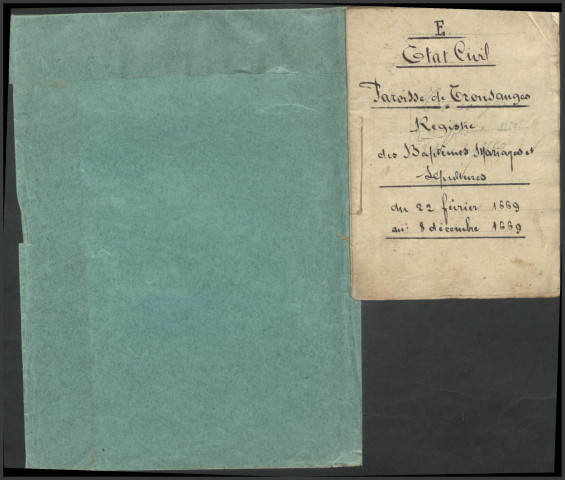 E
Etat Civil
Paroisse de Tronsanges
Registre
des Baptêmes Mariages et
Sépultures
du 22 février 1669
au 8 décembre 1669